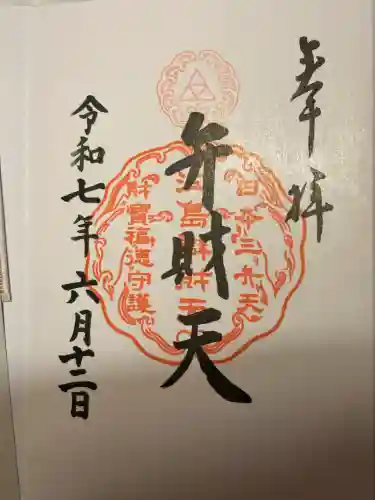 奉拝
日本三大
弁財天
江島弁財天
財寶福徳守護
令和七年六月十二日